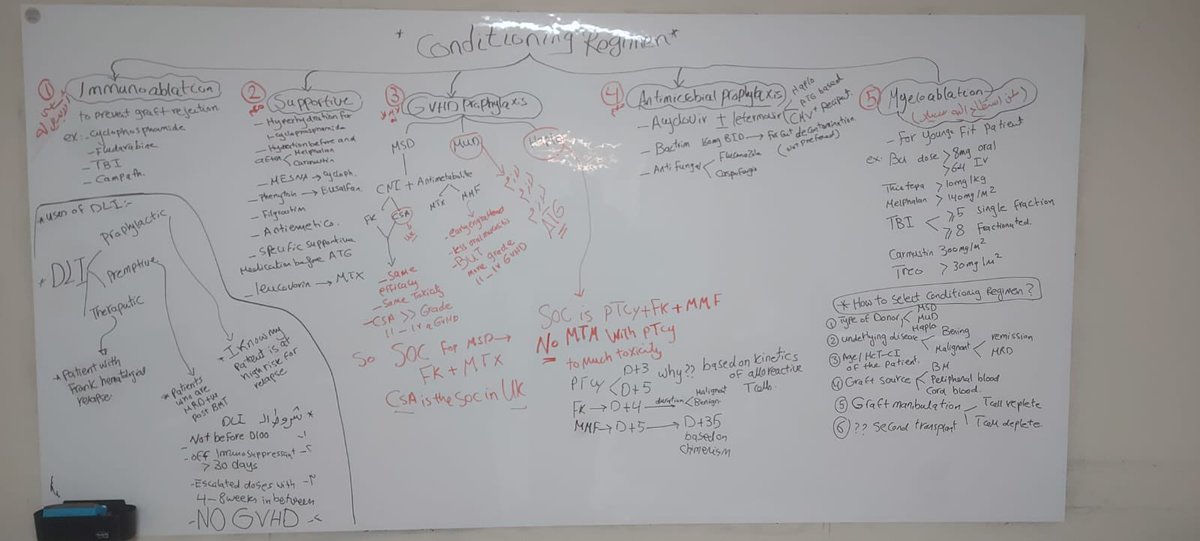 * Conditioning Regimen *
①
Immunoablation
to prevent graft rejection
ex:- cyclophosphamide
- Fludarabine
- TBI
- Campath.
* uses of DLI:-
* DLI
Prophylactic
Premptive
Theraputic
* Patient with
Frank hematological
relapse.
* Patients
who are
MRD+ve
Post BMT
* I Know my
Patient is at
high risk for
relapse
* شروط الـ DLI
١- Not before D100
٢- off Immunosuppressant
> 30 days
٣- Escalated doses with
4-8 weeks in between
٤- NO GVHD
②
Supportive
- Hyperhydration for
cyclophosphamide
- Hydration before and
after
Melphalan
Carmustin
- MESNA → cycloph.
- Phenytoin → Busulfan.
- Filgrastim
- Antiemetics.
- Specific supportive
Medication before ATG
- leucovorin → MTX
③
GVHD Prophylaxis
MSD
MUD
Haplo
CNI + Antimetabolite
FK
CSA
UK
MTX
MMF
- Same
efficacy
- Same Toxicity
- CSA >> Grade
II-IV aGVHD
- early engraftment
- less oral mucositis
- BUT
more grade
II-IV GVHD
ATG
So SOC for MSD →
FK + MTX
CSA is the SOC in UK
SOC is PTCy + FK + MMF
No MTX with PTCy
to Much toxicity
PTCy
D+3
D+5
why?? based on kinetics
of alloreactive
T cells.
FK → D+4 duration
Malignant
Benign.
MMF → D+5 → D+35
based on
chimerism
④
Antimicrobial Prophylaxis
- Acyclovir ± letermovir
Haplo
ATG based
CMV + Recipet.
- Bactrim 160mg BID → For Gut decontamination
(not preferred)
- Antifungal
Fluconazole
Caspofungin
⑤
Myeloablation
- For Young Fit Patient
ex: Bu dose > 8mg oral
> 6.4 IV
Thiotepa > 10mg/kg
Melphalan > 140mg/m2
TBI
≥ 5 single fraction
≥ 8 Fractionated.
Carmustin 300mg/m²
Treo > 30mg/m²
* How to select Conditioning Regimen?
① Type of Donor
MSD
MUD
Haplo
② underlying disease
Bening
Malignant
remission
MRD
③ Age/HCT-CI
of the patient.
④ Graft source
BM
Peripheral blood
Cord blood.
⑤ Graft manibulation
T cell replete
T cell deplete
⑥ ?? Second transplant